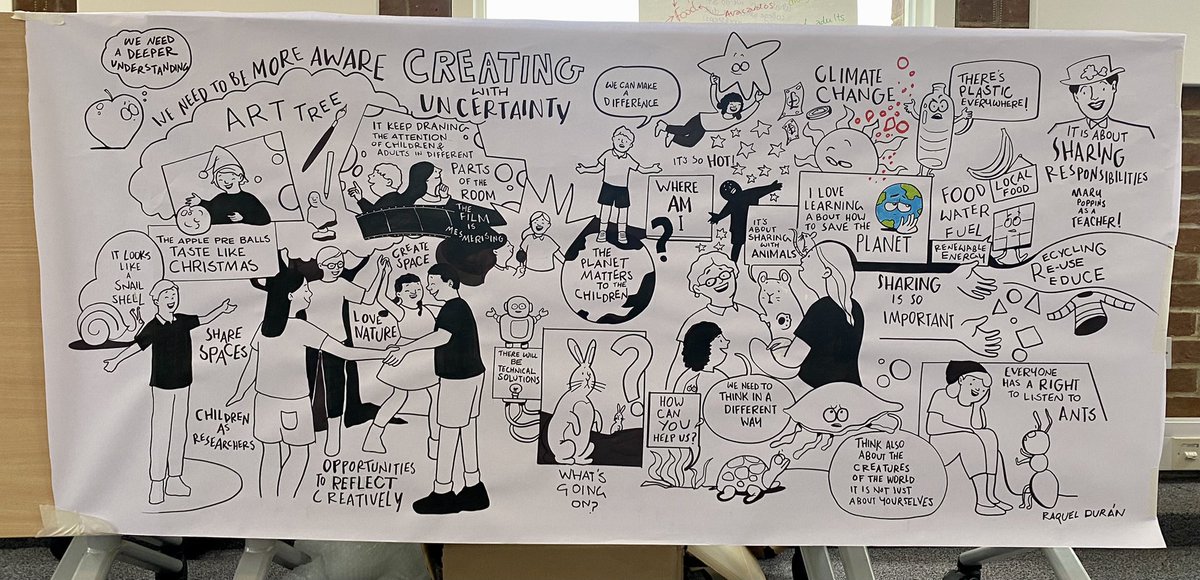 food
Avacados
adults
WE NEED
A DEEPER
UNDERSTANDING
WE NEED TO BE MORE AWARE
CREATING
WITH
UNCERTAINTY
ART TREE
IT KEEP DRANING
THE ATTENTION
OF CHILDREN &
ADULTS IN DIFFERENT
PARTS
OF THE
ROOM
THE
FILM
IS
MESMERISING
THE APPLE PRE BALLS
TASTE LIKE
CHRISTMAS
IT LOOKS
LIKE
A
SNAIL
SHELL
SHARE
SPACES
CREATE
SPACE
LOVE
NATURE
CHILDREN
AS
RESEARCHERS
OPPORTUNITIES
TO REFLECT
CREATIVELY
WE CAN MAKE
A DIFFERENCE
IT'S SO HOT!
WHERE
AM
I
?
THE
PLANET
MATTERS
TO THE
CHILDREN
THERE WILL
BE
TECHNICAL
SOLUTIONS
?
WHAT'S
GOING
ON?
CLIMATE
CHANGE
THERE'S
PLASTIC
EVERYWHERE!
IT IS ABOUT
SHARING
RESPONSIBILITIES
MARY
POPPINS
AS A
TEACHER!
I LOVE
LEARNING
ABOUT HOW
TO SAVE THE
PLANET
IT'S
ABOUT
SHARING
WITH
ANIMALS
FOOD
WATER
FUEL
LOCAL
FOOD
RENEWABLE
ENERGY
RECYCLING
RE-USE
REDUCE
SHARING
IS SO
IMPORTANT
HOW
CAN
YOU
HELP US?
WE NEED TO
THINK IN A
DIFFERENT
WAY
THINK ALSO
ABOUT THE
CREATURES
OF THE WORLD
IT IS NOT JUST
ABOUT YOURSELVES
EVERYONE
HAS A RIGHT
TO LISTEN TO
ANTS
RAQUEL DURÁN